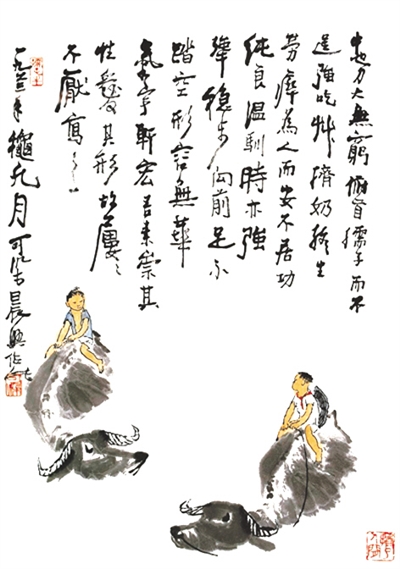 牛也力大無窮俯首孺子而不
逞強吃艸擠奶終生
勞瘁為人而安不居功
純良温馴時亦強
犟穩步向前足不
踏空形容無華
氣宇軒宏吾素崇其
性愛其形故屢〻
不厭寫之
一九六二年龝九月可染晨興作